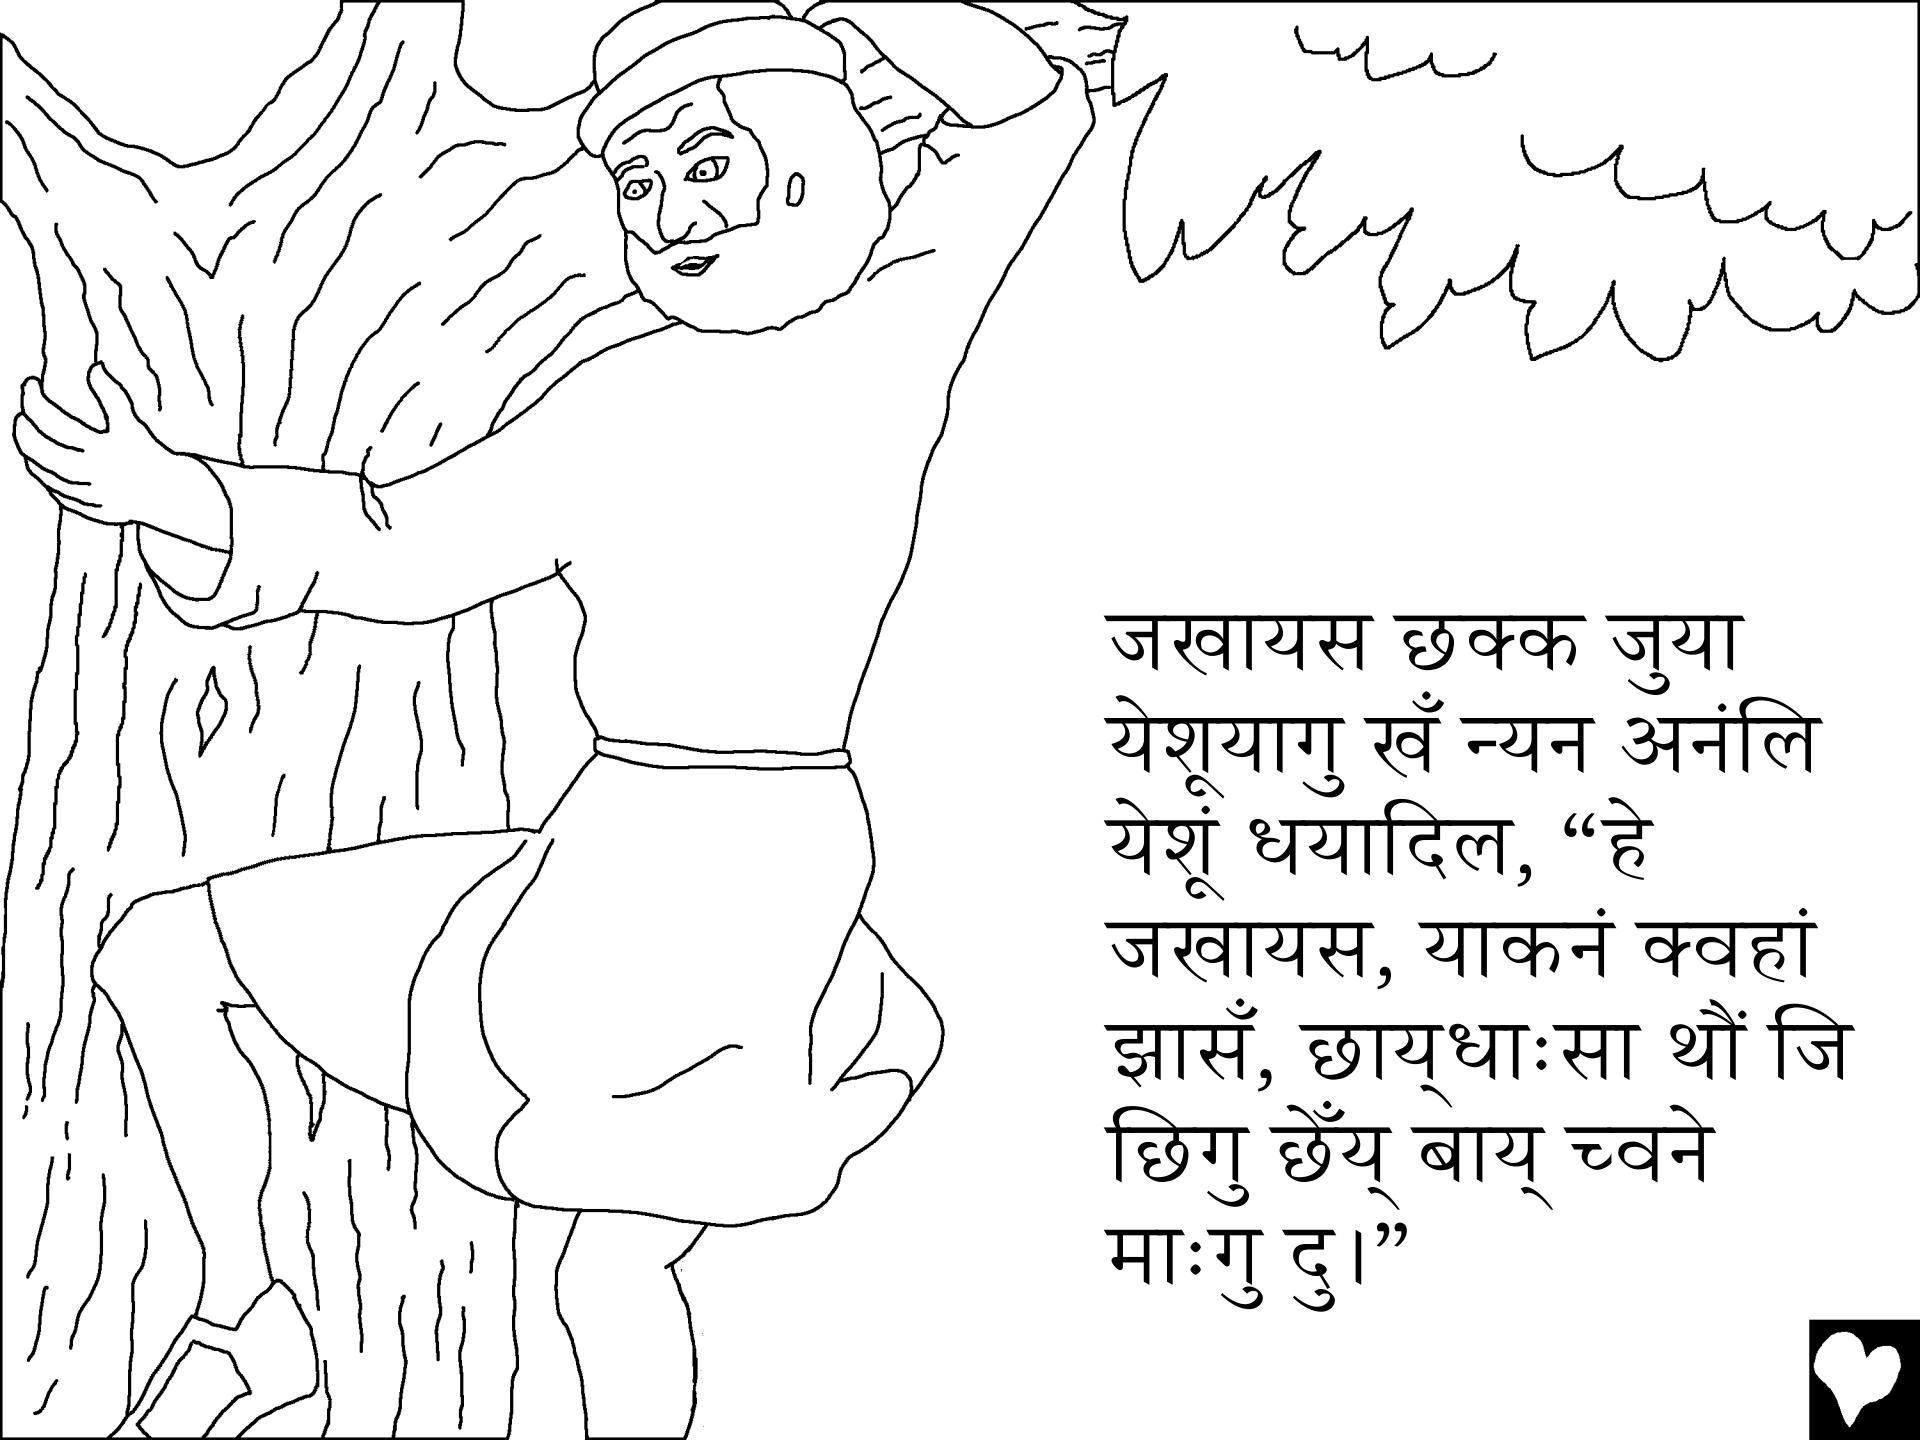 जखायस छक्क जुया
येशूयागु खँ न्यन अनंलि
येशूं धयादिल, “हे
जखायस, याकनं क्वहां
झासँ, छाय्‌धाःसा थौं जि
छिगु छेँय् बाय् च्वने
माःगु दु।”